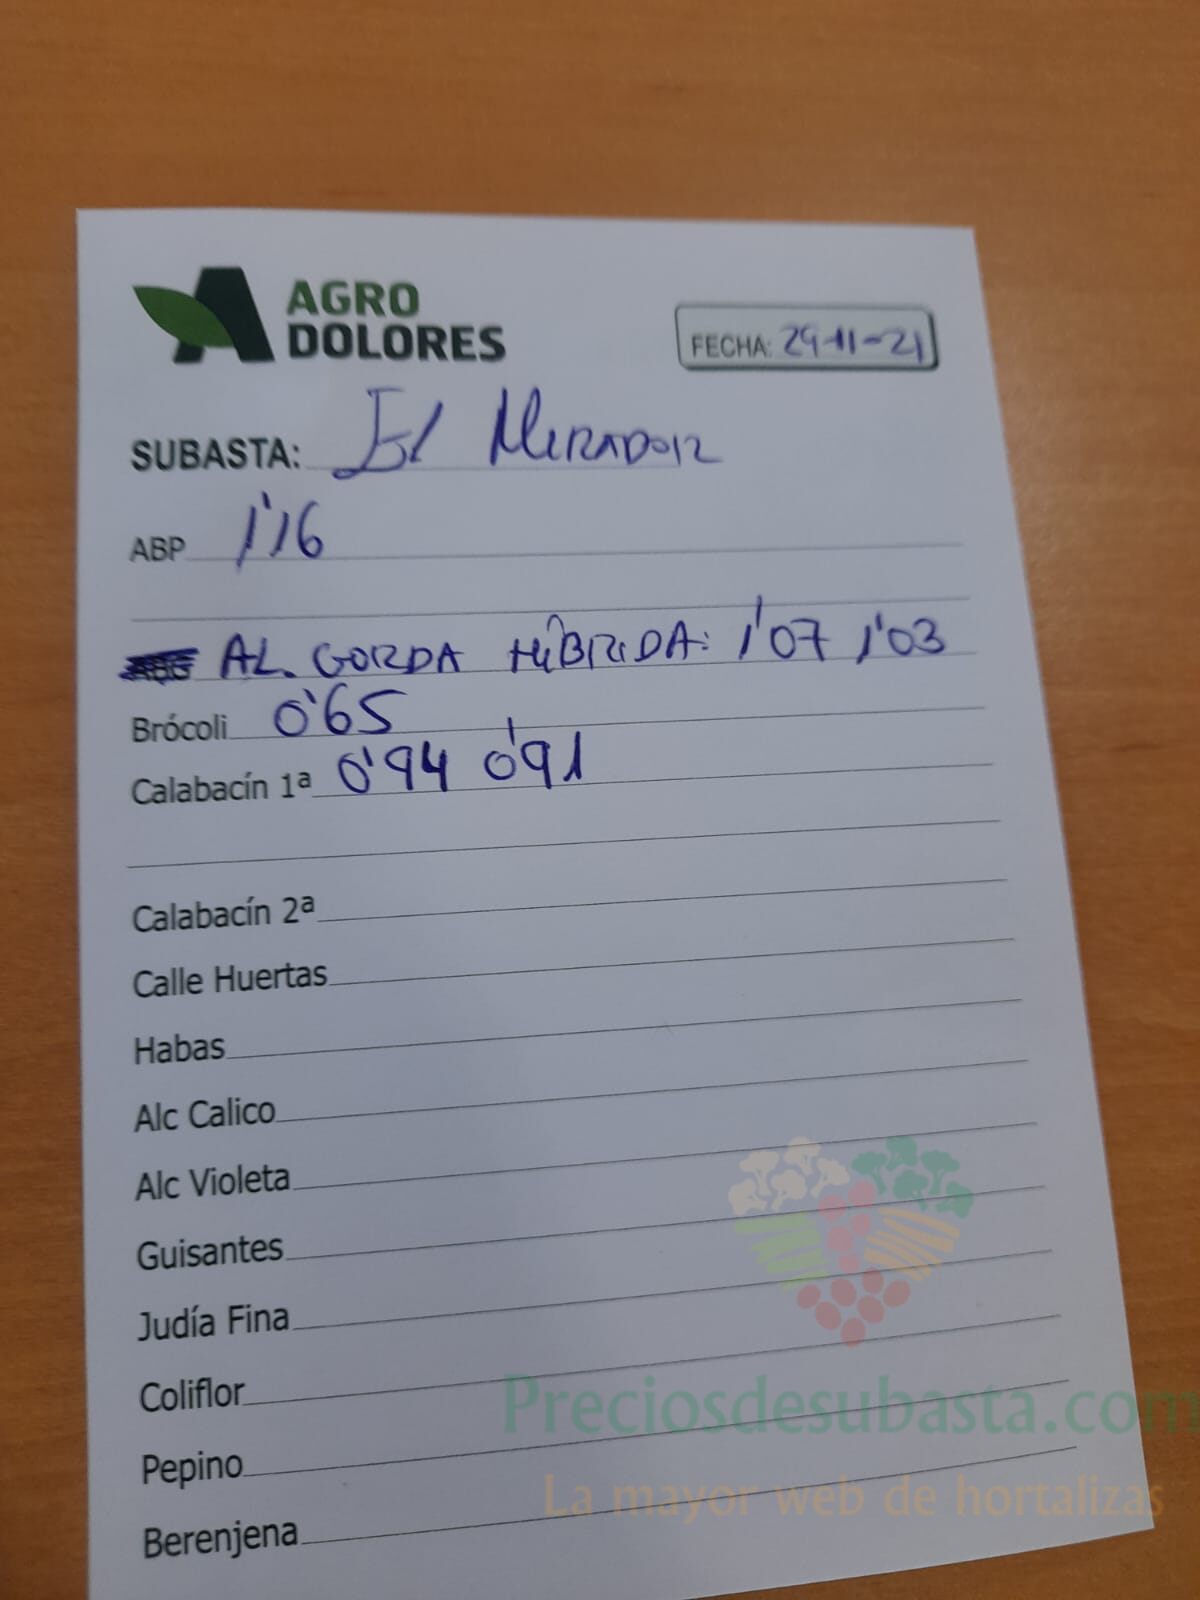 AGRO
DOLORES
FECHA: 29-11-21
SUBASTA: El Mirador
ABP 1'16
AL. GORDA HÍBRIDA: 1'07 1'03
Brócoli 0'65
Calabacín 1ª 0'94 0'91
Calabacín 2ª
Calle Huertas
Habas
Alc Calico
Alc Violeta
Guisantes
Judía Fina
Coliflor
Pepino
Berenjena
Preciosdesubasta.com
La mayor web de hortalizas